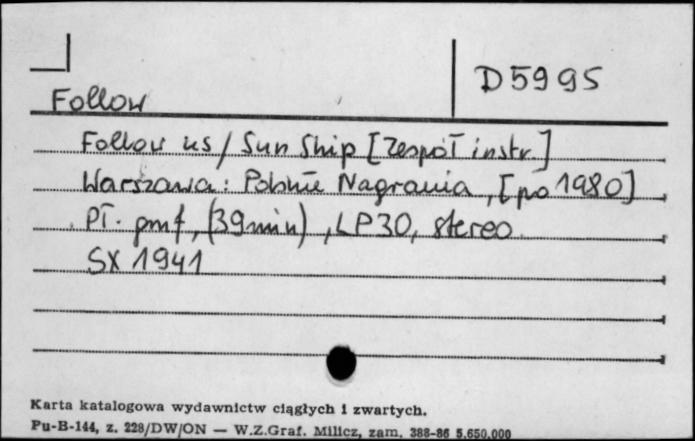 D5995
Follow
Follow us / Sun Ship [Zespół instr.]
Warszawa: Polskie Nagrania, [po 1980]
Pł. gmf, (39 min), LP30, stereo
SX 1941
Karta katalogowa wydawnictw ciągłych i zwartych.
Pu-B-144, z. 228/DW/ON — W.Z.Graf. Milicz, zam. 388-86 5.650.000